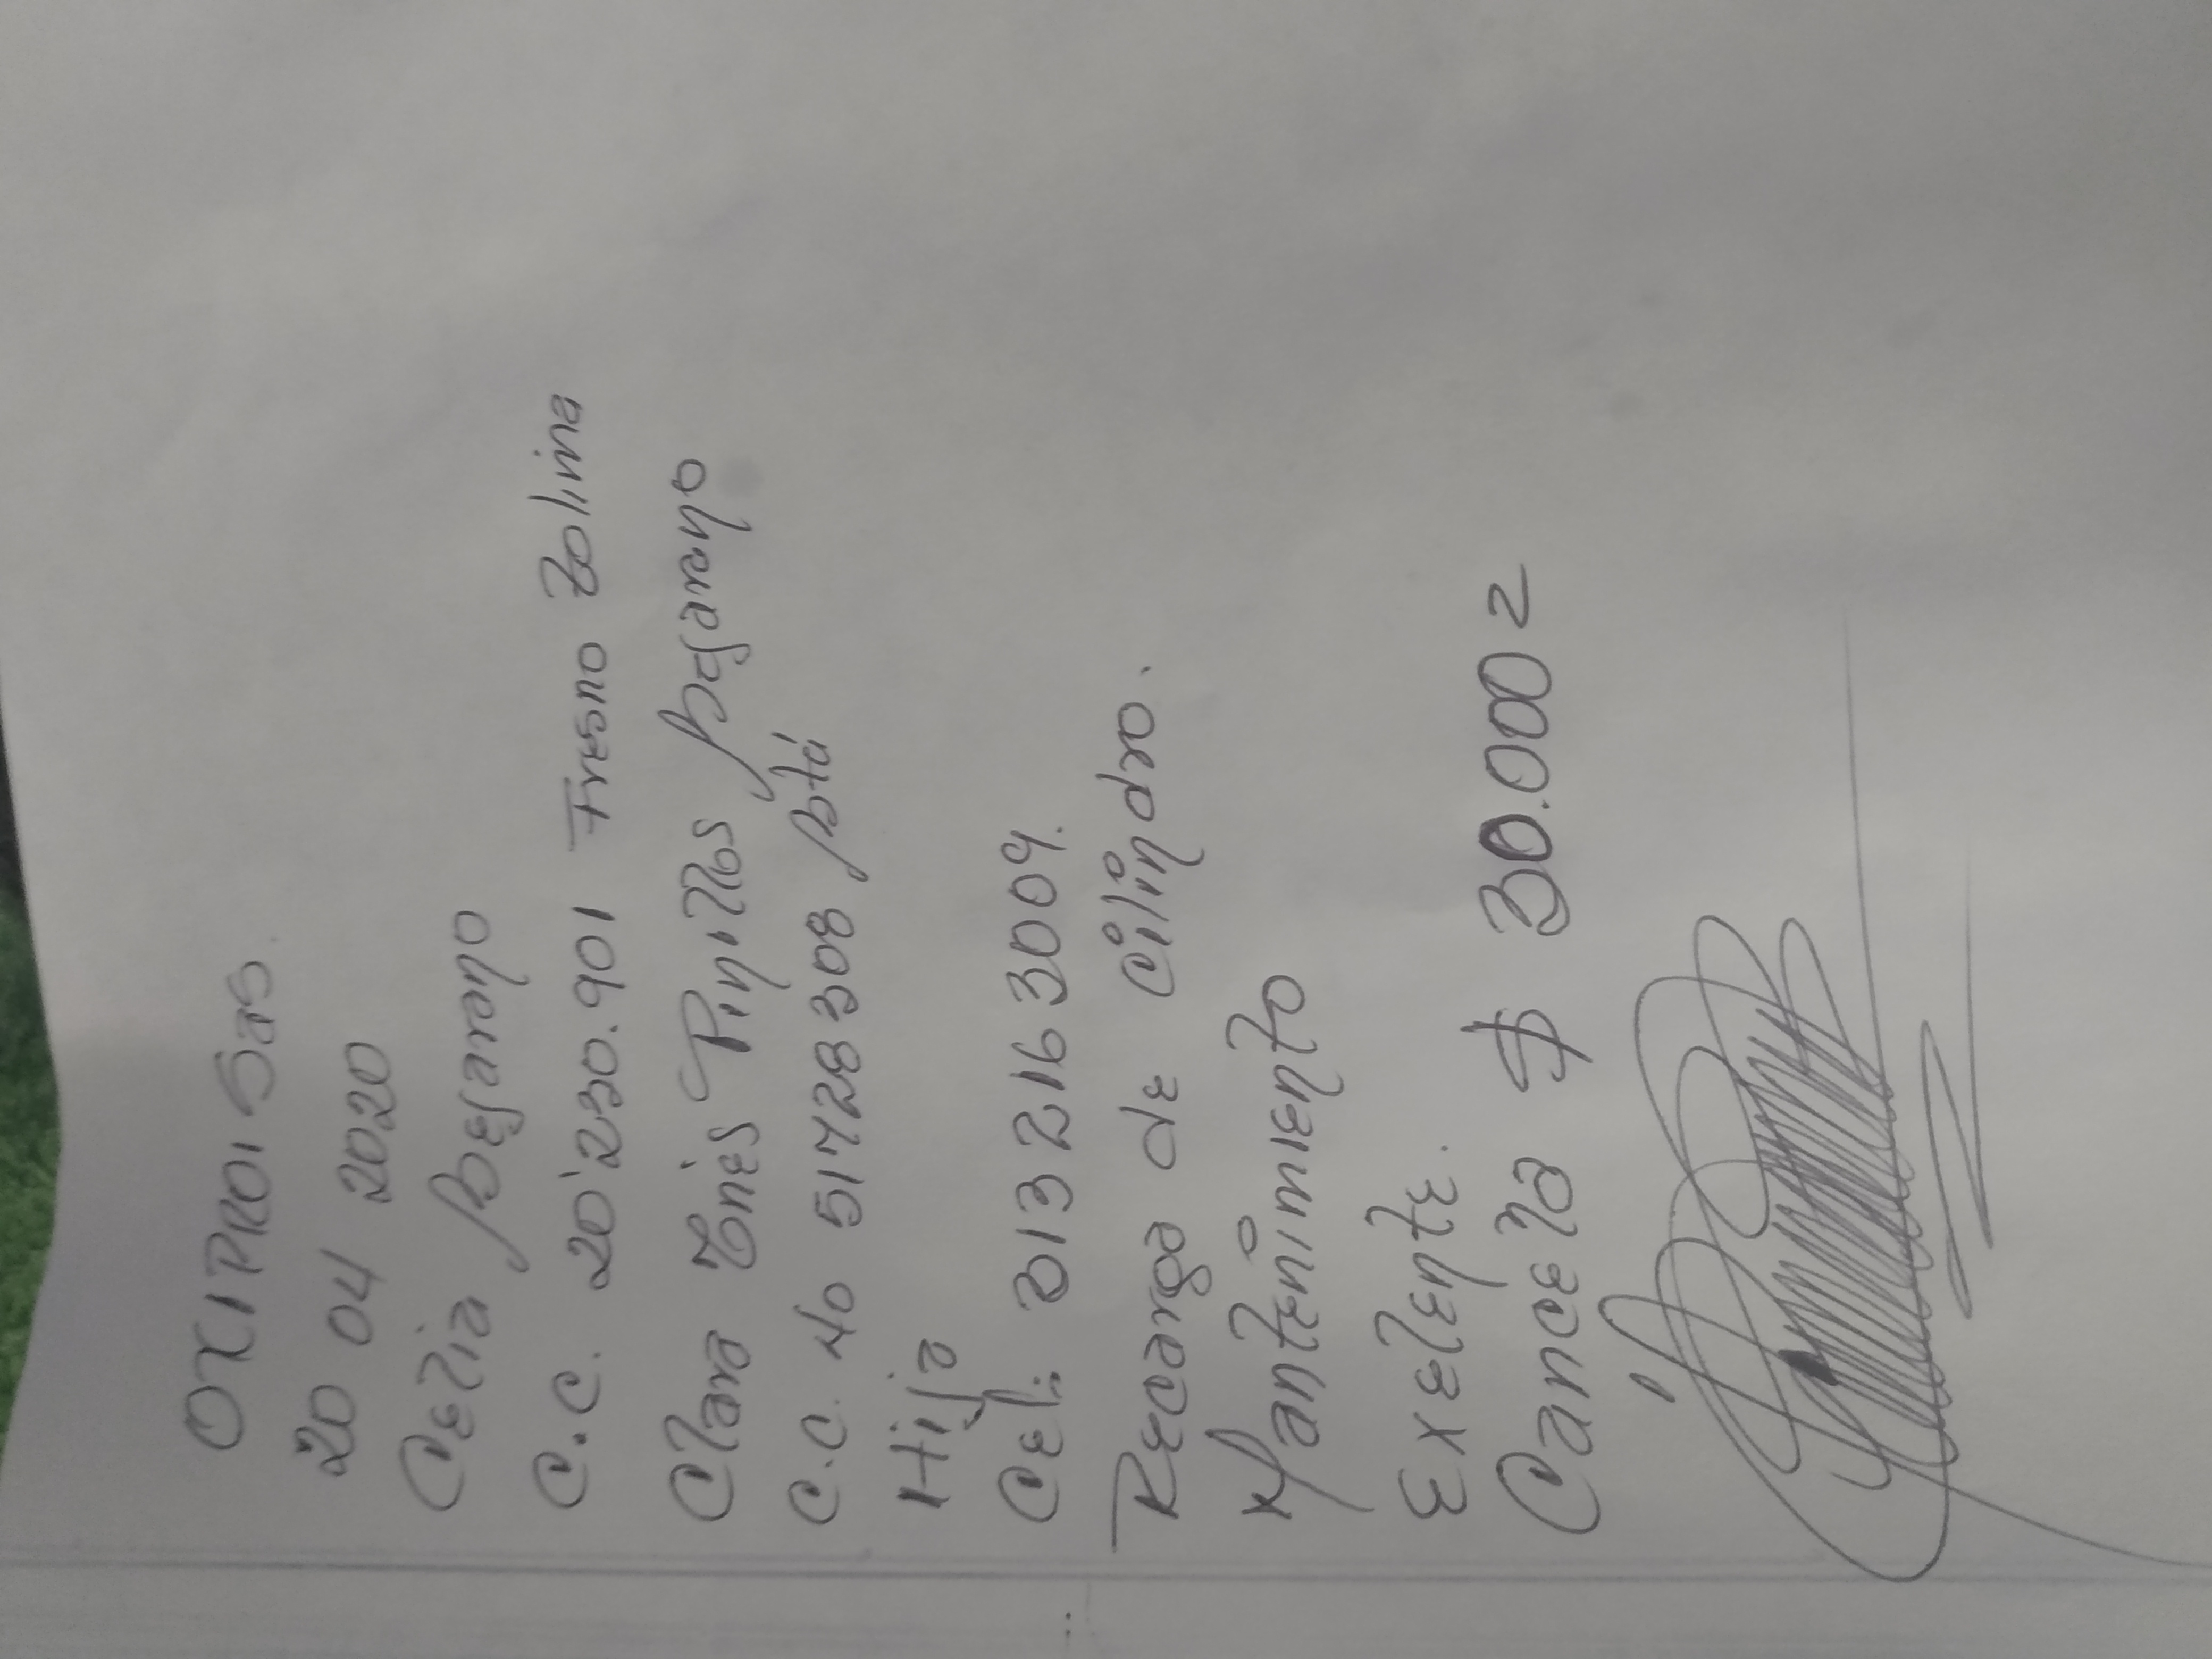 OXIPROI SaS.
20 04 2020
Celia Bejarano
C.C. 20'230.901 Fresno Tolima
Clara Inés Pinilla Bejarano
C.C. No 51728308 Btá
Hija
Cel: 313 216 3009.
Recarga de Cilindro.
Mantenimiento
Exelente.
Cancela $ 30.000